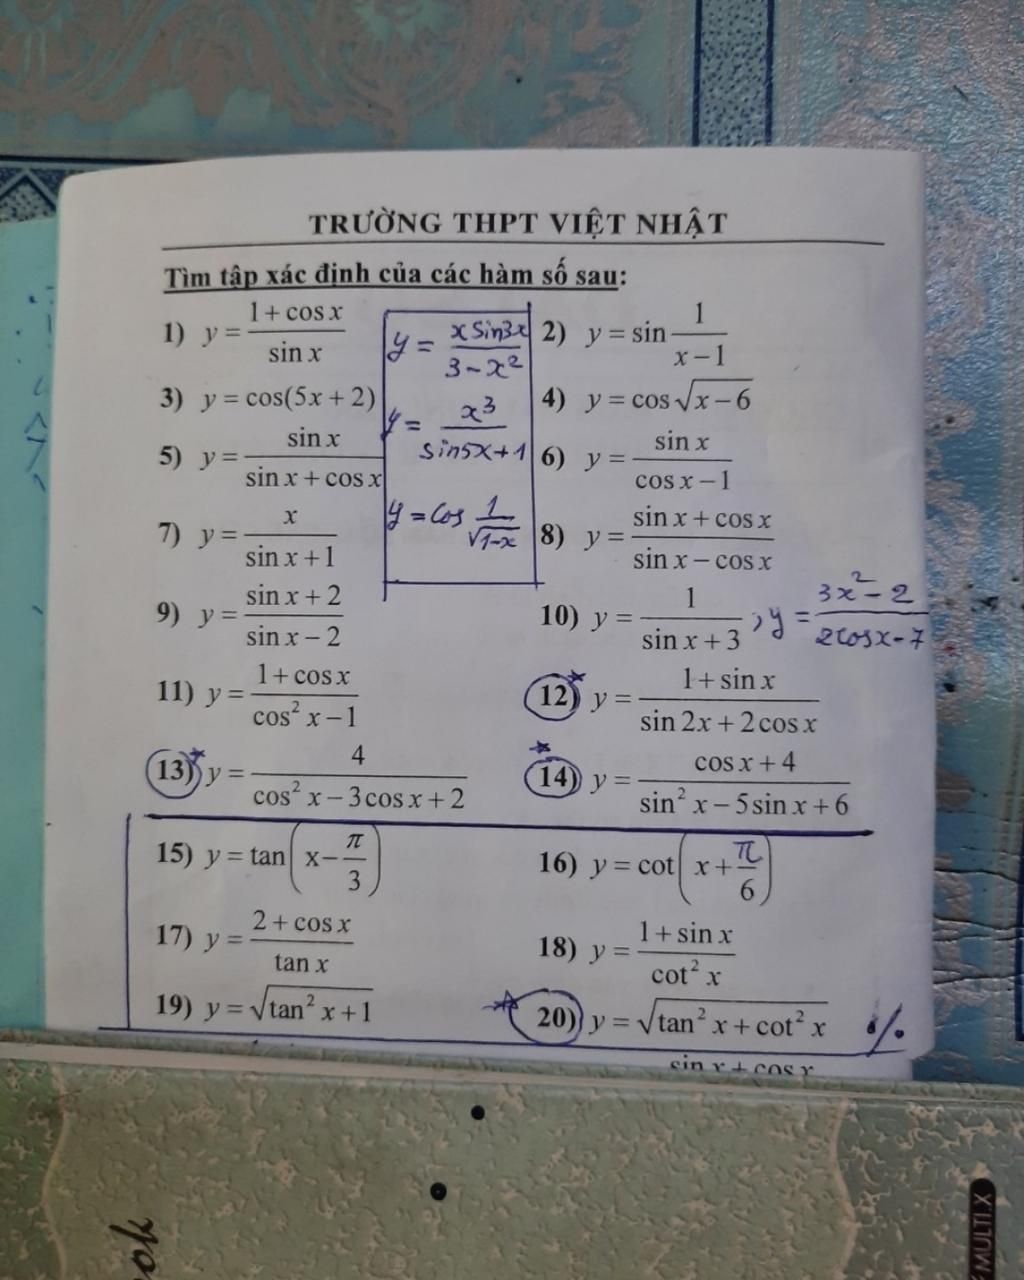 TRƯỜNG THPT VIỆT NHẬT
Tìm tập xác định của các hàm số sau:
1) y = (1 + cos x)/(sin x)
y = (x sin3x)/(3 - x²)
2) y = sin 1/(x - 1)
3) y = cos(5x + 2)
y = x³/(sin5x + 1)
4) y = cos √(x - 6)
5) y = (sin x)/(sin x + cos x)
6) y = (sin x)/(cos x - 1)
7) y = x/(sin x + 1)
y = cos 1/√(1-x)
8) y = (sin x + cos x)/(sin x - cos x)
9) y = (sin x + 2)/(sin x - 2)
10) y = 1/(sin x + 3) ; y = (3x² - 2)/(2cosx - 7)
11) y = (1 + cos x)/(cos² x - 1)
12) y = (1 + sin x)/(sin 2x + 2 cos x)
13) y = 4/(cos² x - 3 cos x + 2)
14) y = (cos x + 4)/(sin² x - 5 sin x + 6)
15) y = tan(x - π/3)
16) y = cot(x + π/6)
17) y = (2 + cos x)/(tan x)
18) y = (1 + sin x)/(cot² x)
19) y = √(tan² x + 1)
20) y = √(tan² x + cot² x)
sin x + cos x
ook
MULTI.X